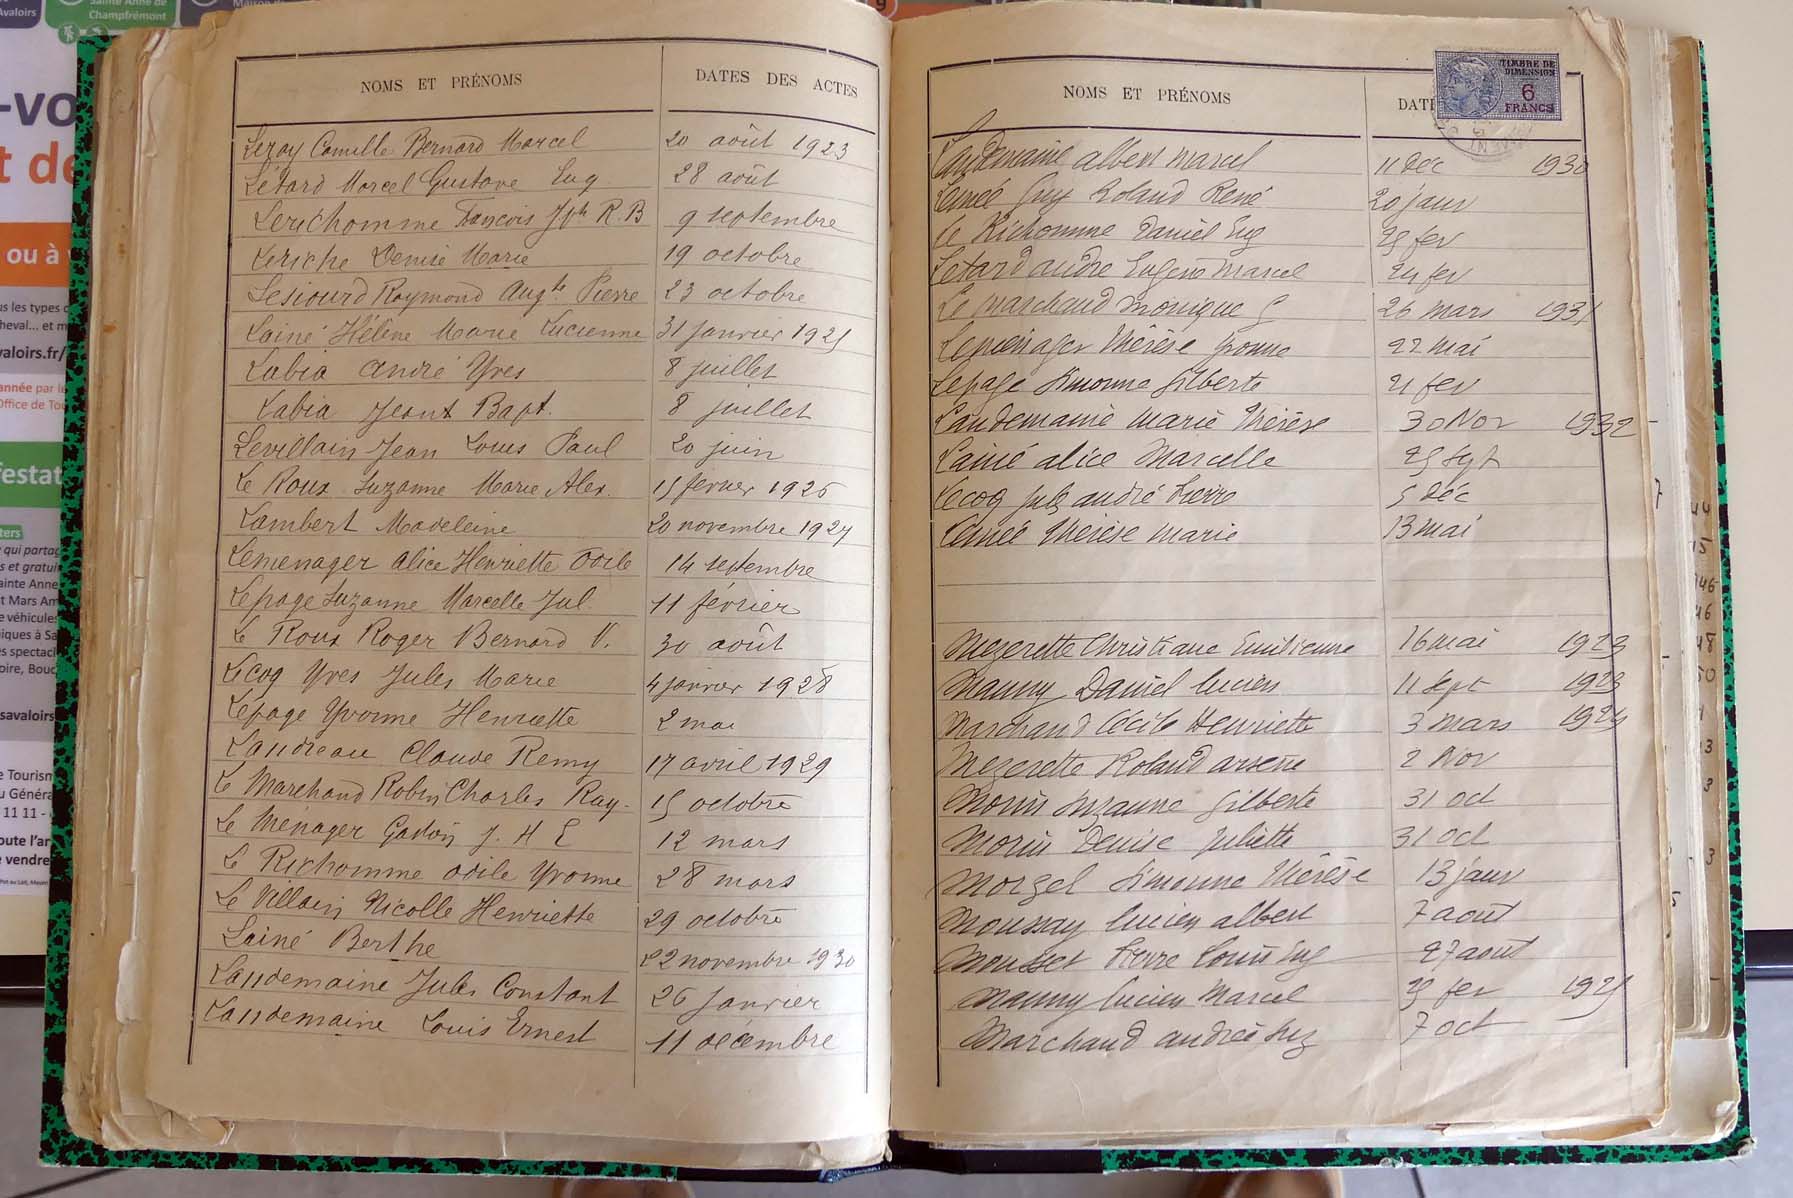 Sainte Anne de
Champfrémont
Avaloirs
-vo
t de
ou à v
valoirs.fr/
année par le
Office de Tou
festat
qui partag
s et gratuit
ainte Anne
t Mars Am
e véhicules
iques à Sa
s spectacl
oire, Bouc
savaloirs
e Tourism
u Généra
11 11 -
oute l'an
e vendre
NOMS ET PRÉNOMS DATES DES ACTES
Leroy Camille Bernard Marcel 20 août 1923
Létard Marcel Gustave Eug. 28 août
Lerichomme François Jph R.B 9 septembre
Leriche Denise Marie 19 octobre
Lesiourd Raymond Augte Pierre 23 octobre
Lainé Hélène Marie Lucienne 31 janvier 1925
Labia André Yves 8 juillet
Labia Jean Bapt. 8 juillet
Levillain Jean Louis Paul 20 juin
Le Roux Suzanne Marie Alex. 15 février 1926
Lambert Madeleine 20 novembre 1927
Lemenager Alice Henriette Odile 14 septembre
Lepage Suzanne Marcelle Jul. 11 février
Le Roux Roger Bernard V. 30 août
Lecoq Yves Jules Marie 4 janvier 1928
Lepage Yvonne Henriette 2 mai
Landreau Claude Remy 17 avril 1929
Le Marchand Robin Charles Ray. 15 octobre
Le Menager Gaston J. H E 12 mars
Le Richomme Odile Yvonne 28 mars
Le Villain Nicolle Henriette 29 octobre
Lainé Berthe 22 novembre 1930
Landemaine Jules Constant 26 janvier
Landemaine Louis Ernest 11 décembre
NOMS ET PRÉNOMS DAT
TIMBRE DE
DIMENSION
6
FRANCS
Landemaine albert marcel 11 Déc 1930
Lainé Guy Roland René 20 janv
Le Richomme Daniel Eug 25 fev
Letard andré Eugène Marcel 24 fev
Le marchand monique G 26 mars 1931
Lemenager Thérèse Yvonne 22 mai
Lepage Simonne Gilberte 21 fev
Landemaine marie Thérèse 30 Nov 1932
Lainé alice Marcelle 25 Sept
Lecoq Jules andré Pierre 5 Déc
Lainé Thérèse marie 13 mai
Mezerette Christiane Emilienne 16 mai 1923
Manny Daniel Lucien 11 Sept 1923
Marchand Cécile Henriette 3 mars 1924
Mezerette Roland arsène 2 Nov
Morin Suzanne Gilberte 31 oct
Morin Denise Juliette 31 oct
Morzel Simonne Thérèse 13 janv
Moussay Lucien albert 7 aout
Mousset Pierre Louis Eug 27 aout
Manny Lucien Marcel 25 fev 1925
Marchand andrée Suz 7 oct